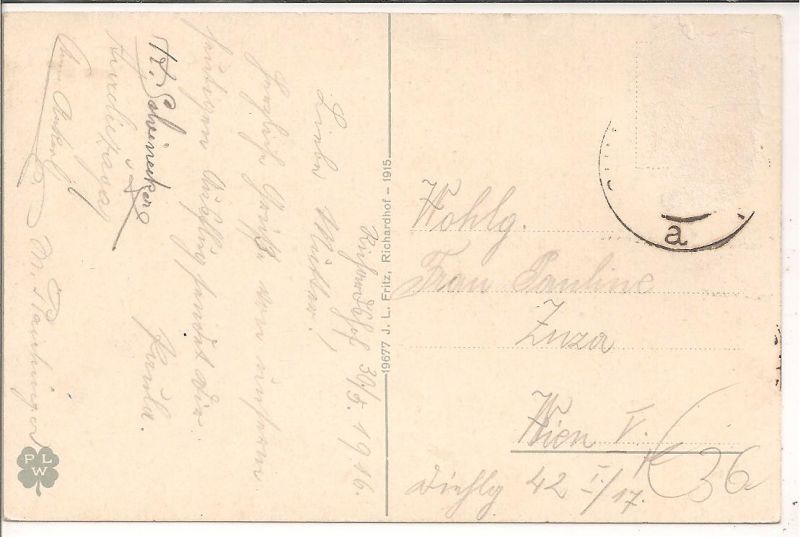 Richardshof 30/5. 1916.
Liebe Mutter!
Herzliche Grüße von unserem
heutigen Ausflug sendet Dir
Paula.
19677 J. L. Fritz, Richardhof – 1915
a
Wohlg.
Frau Pauline
Zuza
Wien V.
Diehlg 42 I/17.
36
PLW